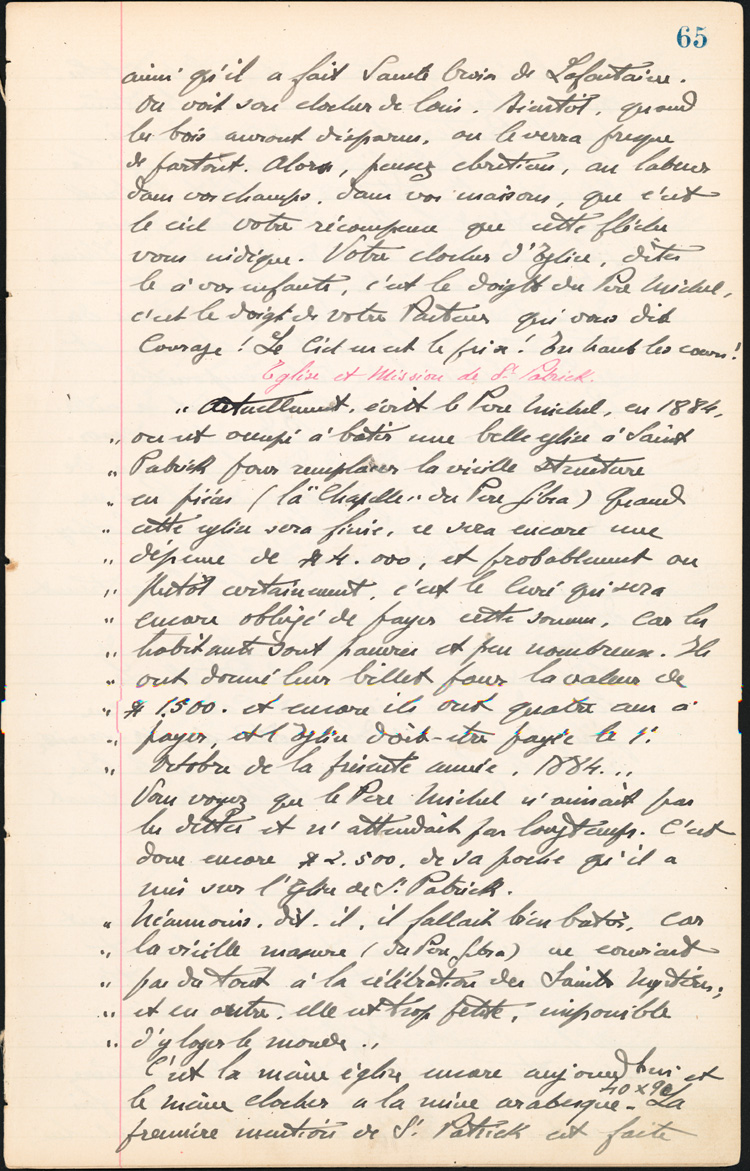 65
ainsi qu'il a fait Sainte Croix de Lafontaine.
On voit son clocher de loin. Bientôt, quand
les bois auront disparus, on le verra presque
de partout. Alors, pensez chretiens, au labeur
dans vos champs, dans vos maisons, que c'est
le ciel votre récompense que cette flêche
vous indique. Votre clocher d'Eglise, dites
le à vos enfants, c'est le doigt du Père Michel,
c'est le doigt de votre Pasteur qui vous dit
Courage! Le Ciel en est le prix! En haut les coeurs!
Eglise et Mission de St Patrick.
" Actuellement, écrit le Pere Michel, en 1884,
" on est occupé à bâtir une belle eglise à Saint
" Patrick pour remplacer la vieille structure
" en pièces (la "Chapelle" du Père Gibra) Quand
" cette eglise sera finie, ce sera encore une
" depense de $4.000, et probablement ou
" plutôt certainement, c'est le Curé qui sera
" encore obligé de payer cette somme, car les
" habitants sont pauvres et peu nombreux. Ils
" ont donné leur billet pour la valeur de
" $1.500. et encore ils ont quatre ans à
" payer, et l'Eglise doit-etre payée le 1er
" Octobre de la presente année, 1884.."
Vous voyez que le Père Michel n'aimait pas
les dettes et n'attendait pas longtemps. C'est
donc encore $2.500. de sa poche qu'il a
mis sur l'Eglise de St Patrick.
" Néanmoins, dit-il, il fallait bien batir, car
" la vieille masure (du Pere Gibra) ne convient
" pas du tout à la célébration des Saints Mystères;
" et en outre, elle est trop petite, impossible
" d'y loger le monde."
C'est la même église encore aujourd'hui et
le même clocher a la mine arabesque. 40 x 90 La
premiere mention de St Patrick est faite